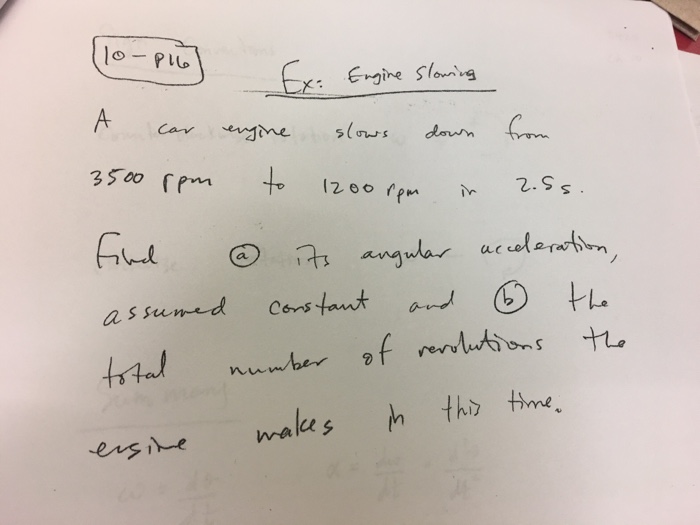 10-P16
Ex: Engine Slowing
A car engine slows down from
3500 rpm to 1200 rpm in 2.5s.
Find ⓐ its angular acceleration,
assumed constant and ⓑ the
total number of revolutions the
engine makes in this time.